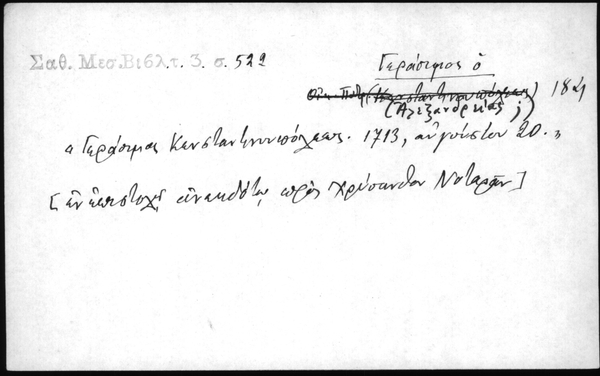 Σαθ. Μεσ.Βιβλ.τ. 3. σ. 522
Γεράσιμος ὁ
Οἰκ. Πατρ. (Κωνσταντινουπόλεως) 18 αἰ
(Ἀλεξανδρείας ;)
"Γεράσιμος Κωνσταντινουπόλεως. 1713, αὐγούστου 20."
[ἐν ἐπιστολῇ ἀνεκδότῳ πρὸς Χρύσανθον Νοταρᾶν]